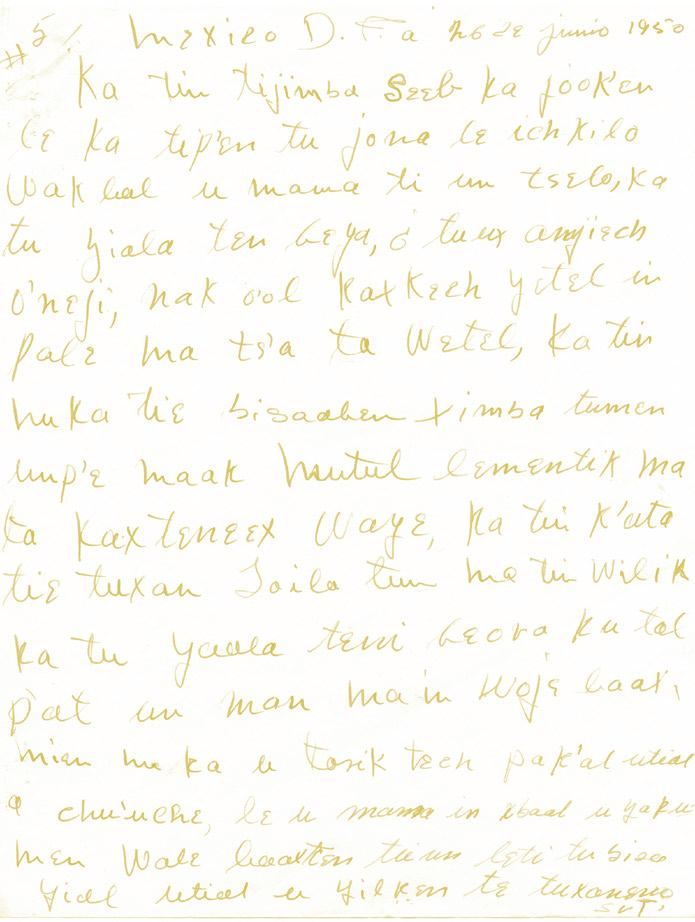 #5 / Mexico D.F. a 26 de junio 1950
Ka tin tijimba Seeb ka jook'en
le ka tip'en tu jona le ich kilo
Wak bal u mama ti un tselo, ka
tu yiala ten beya, o' tuux anjiech
o'neji, nak ool Kaxkech yetel in
pale ma ts'a ta Wetel, Ka tin
nuka tie bisaaben ximba tumen
unp'e maak lementik ma
ta kaxteneex Waye, Ka tin K'ata
tie tuxan Soila tun ma tin Wilik
ka tu yaala teni beora ku tal
p'at un man ma in Woje baax,
mien nu ka u tosik tech pak'al utial
a chu'uche, le u mama in u yaku
men Wale baaxten tu bisa
yial utial u yilken te tuxaneno